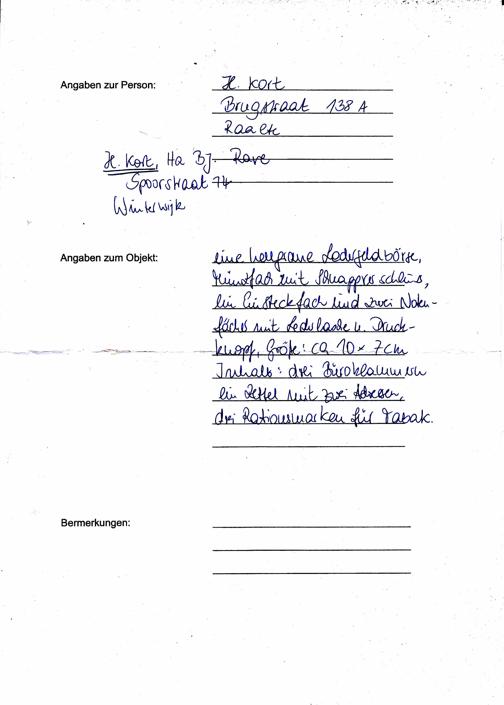 Angaben zur Person:
H. Kort
Brugstraat 138 A
Raalte
H. Kort, Ha Bj. Rave
Spoorstraat 74
Winterwijk
Angaben zum Objekt:
eine hellgraue Ledergeldbörse,
Münzfach mit Schnappverschluss,
ein Einsteckfach und zwei Noten-
fächer mit Lederlasche u. Druck-
knopf, Größe: ca. 10 x 7cm
Inhalt: drei Büroklammern
ein Zettel mit zwei Adressen,
drei Rationsmarken für Tabak.
Bermerkungen: